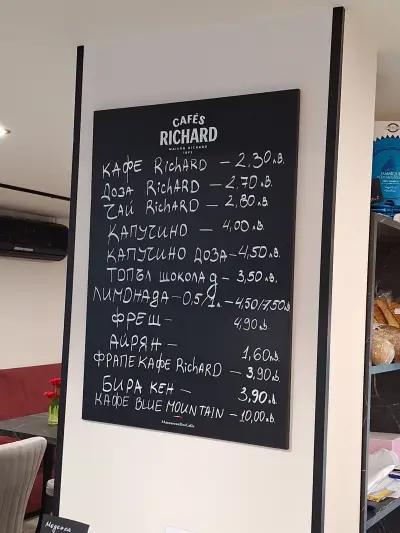 CAFÉS
RICHARD
MAISON RICHARD
1892
КАФЕ RichARD – 2.30лв.
ДОЗА RichARD – 2.70лв.
ЧАЙ RichARD – 2,80лв.
КАПУЧИНО – 4,00лв.
КАПУЧИНО ДОЗА – 4,50лв.
ТОПЪЛ ШОКОЛАД – 3,50лв.
ЛИМОНАДА – 0.5/1л – 4,50/7,50лв
ФРЕШ – 4,90лв.
АЙРЯН – 1,60лв.
ФРАПЕ КАФЕ RichARD – 3,90лв.
БИРА КЕН – 3,90лв.
КАФЕ BLUE MOUNTAIN – 10,00лв.